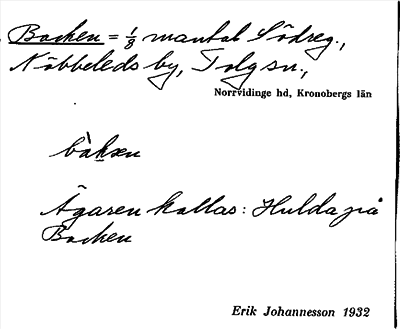 Backen = 1/8 mantal Södreg.,
Nöbbeleds by, Tolg sn.,
Norrvidinge hd, Kronobergs län
bàk̠en
Ägaren kallas: Hulda på
Backen
Erik Johannesson 1932